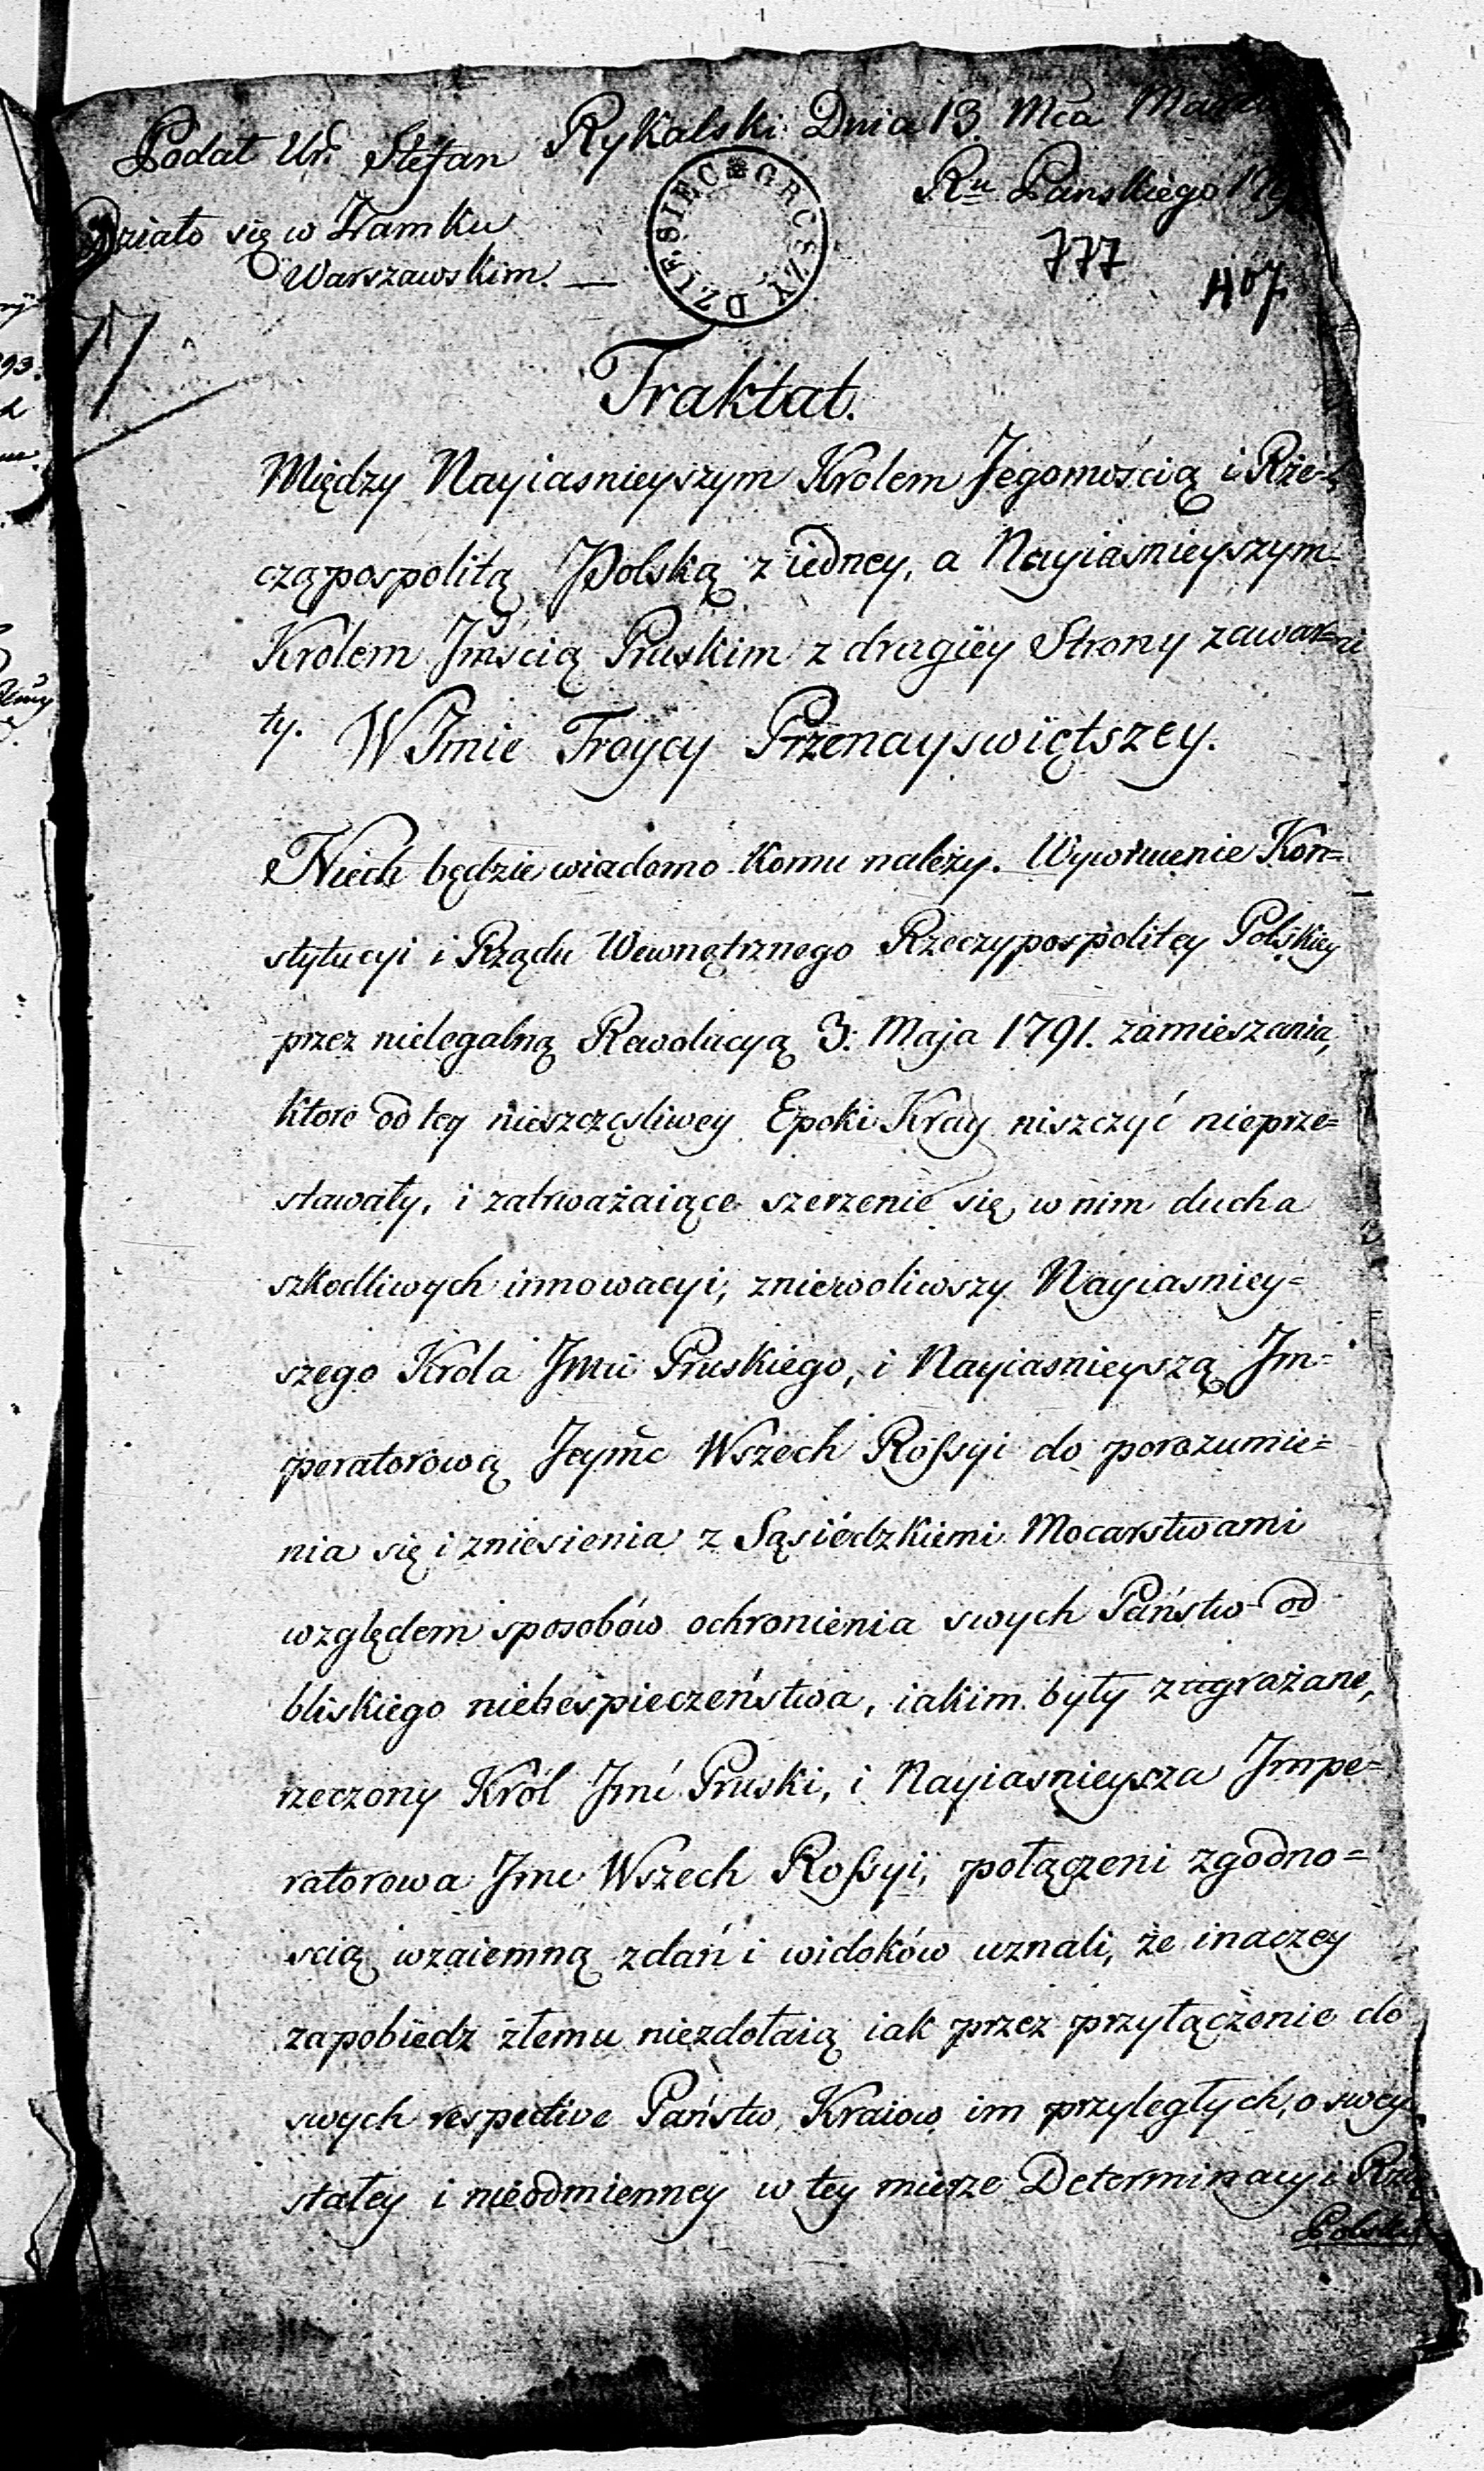 Podał Ur. Stefan Rykalski Dnia 13. Mca
Ru Pańskiego
Działo się w Zamku
Warszawskim. —
GRCSZY DZIESIĘC
777
407
Traktat.
Między Nayiasnieyszym Krolem Jegomością i Rze-
cząpospolitą Polską z iedney, a Nayiaśnieyszym
Królem Jmścią Pruskim z drugiey Strony zawar=
ty. W Imie Troycy Przenayswiętszey.
Niech będzie wiadomo komu należy. Wywrucenie Kon=
stytucyi i Rządu Wewnętrznego Rzeczypospolitey Polskiey
przez nielegalną Rewolucyą 3: Maja 1791. zamieszania,
ktore od tey nieszczęsliwey Epoki Kray niszczyć nieprze=
stawały, i zatrważaiące szerzenie się w nim ducha
szkodliwych innowacyi, zniewoliwszy Nayiasniey=
szego Krola Jmci Pruskiego, i Nayiasnieyszą Im=
peratorową Jeymc Wszech Rossyi do porozumie=
nia się i zniesienia z Sąsiedzkiemi Mocarstwami
względem sposobów ochronienia swych Państw od
bliskiego niebespieczeństwa, iakim były zagrażane,
rzeczony Król Jmć Pruski, i Nayiasnieysza Impe=
ratorowa Jmc Wszech Rossyi, połączeni zgodno=
scią wzaiemną zdań i widoków uznali, że inaczey
zapobiedz złemu niezdołaią iak przez przyłączenie do
swych respective Państw, Kraiow im przyległych, o swey
stałey i nieodmienney w tey mierze Determinacyi